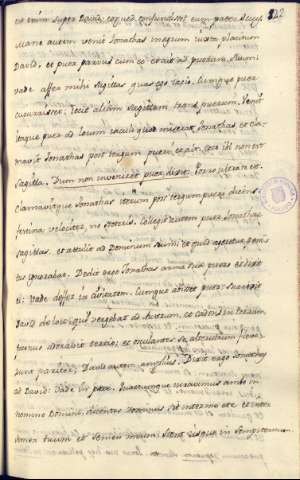 322
est enim super David, eo quod confundisset eum pater suus
mane autem venit Jonathas in agrum juxta placitum
David, et puer parvus cum eo et ait ad puerum suum
vade affer mihi sagittas quas ego jacio. Cumque puer
cucurrisset, jecit aliam sagittam trans puerum. Venit
itaque puer ad locum jaculi quod miserat Jonathas et cla-
mavit Jonathas post tergum pueri et ait: ecce ibi non est
sagitta
Clamavitque Jonathas iterum post tergum pueri dicens
festina velociter, ne steteris. Collegit autem puer Jonathae
sagittas, et attulit ad Dominum suum et quid ageretur peni-
tus ignorabat. Dedit ergo Jonathas arma sua puero et dixit
ei: Vade defer in civitatem. Cumque abiisset puer: surrexit
David de loco, qui vergebat ad Austrum, et cadens in terram
tertio, et osculantes se alterutrum fleve-
runt pariter: David autem amplius. Dixit ergo Jonathas
ad David: Vade in pace. Quaecumque juravimus ambo in
nomine Domini, dicentes Dominus sit inter me et te et inter
semen tuum et semen meum usque in sempiternum.